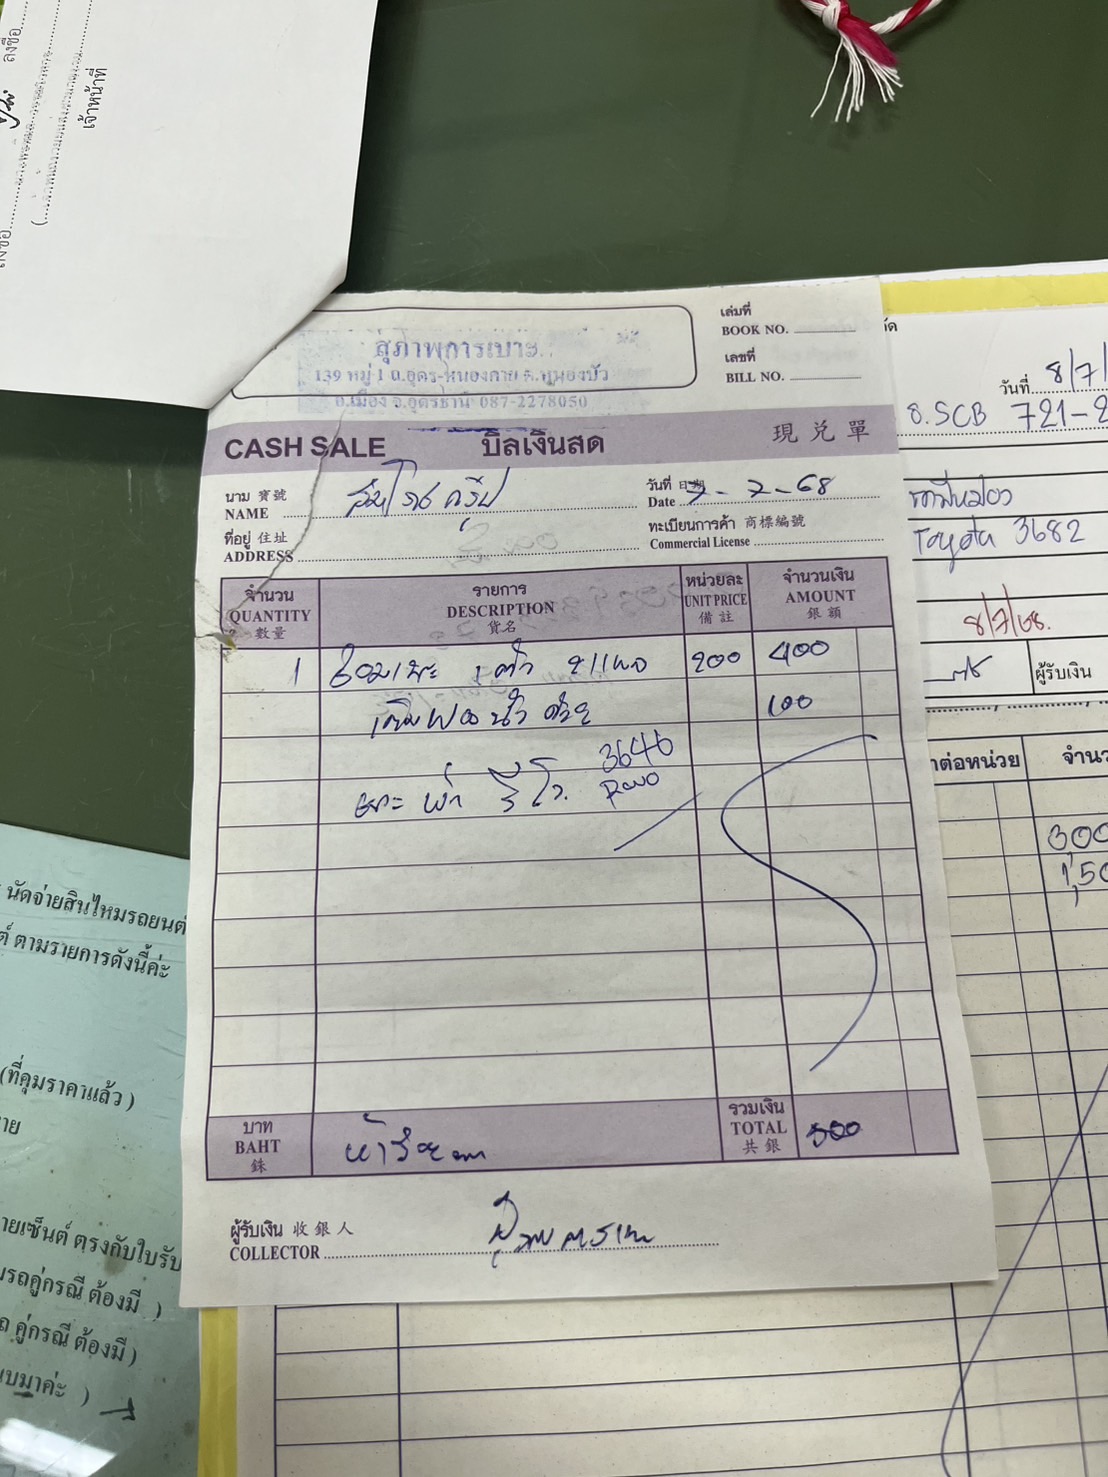 ลงชื่อ
เจ้าหน้าที่
ลงชื่อ
เล่มที่
BOOK NO.
เลขที่
BILL NO.
สุภาพการเบาะ
139 หมู่ 1 ถ.อุดร-หนองคาย ต.หมูม่น
อ.เมือง จ.อุดรธานี 087-2278050
CASH SALE บิลเงินสด 現兌單
นาม 寶號
NAME
วันที่ 日期
Date 7-7-68
ที่อยู่ 住址
ADDRESS
ทะเบียนการค้า 商標編號
Commercial License
จำนวน
QUANTITY
數量
รายการ
DESCRIPTION
貨名
หน่วยละ
UNIT PRICE
備註
จำนวนเงิน
AMOUNT
銀額
1 ซ่อมเบาะ 1 ตัว 200 400
100
3646
เบาะ รีโว่ Revo
บาท
BAHT
銖
ห้าร้อย
รวมเงิน
TOTAL
共銀
500
ผู้รับเงิน 收銀人
COLLECTOR
วันที่ 8/7/
8.SCB 721-2
Toyota 3682
8/7/68
ผู้รับเงิน
าต่อหน่วย
จำนว
นัดจ่ายสินไหมรถยนต์
ต์ ตามรายการดังนี้ค่ะ
(ที่คุมราคาแล้ว)
าย
ายเซ็นต์ ตรงกับใบรับ
รถคู่กรณี ต้องมี )
ถ คู่กรณี ต้องมี)
บมาค่ะ )